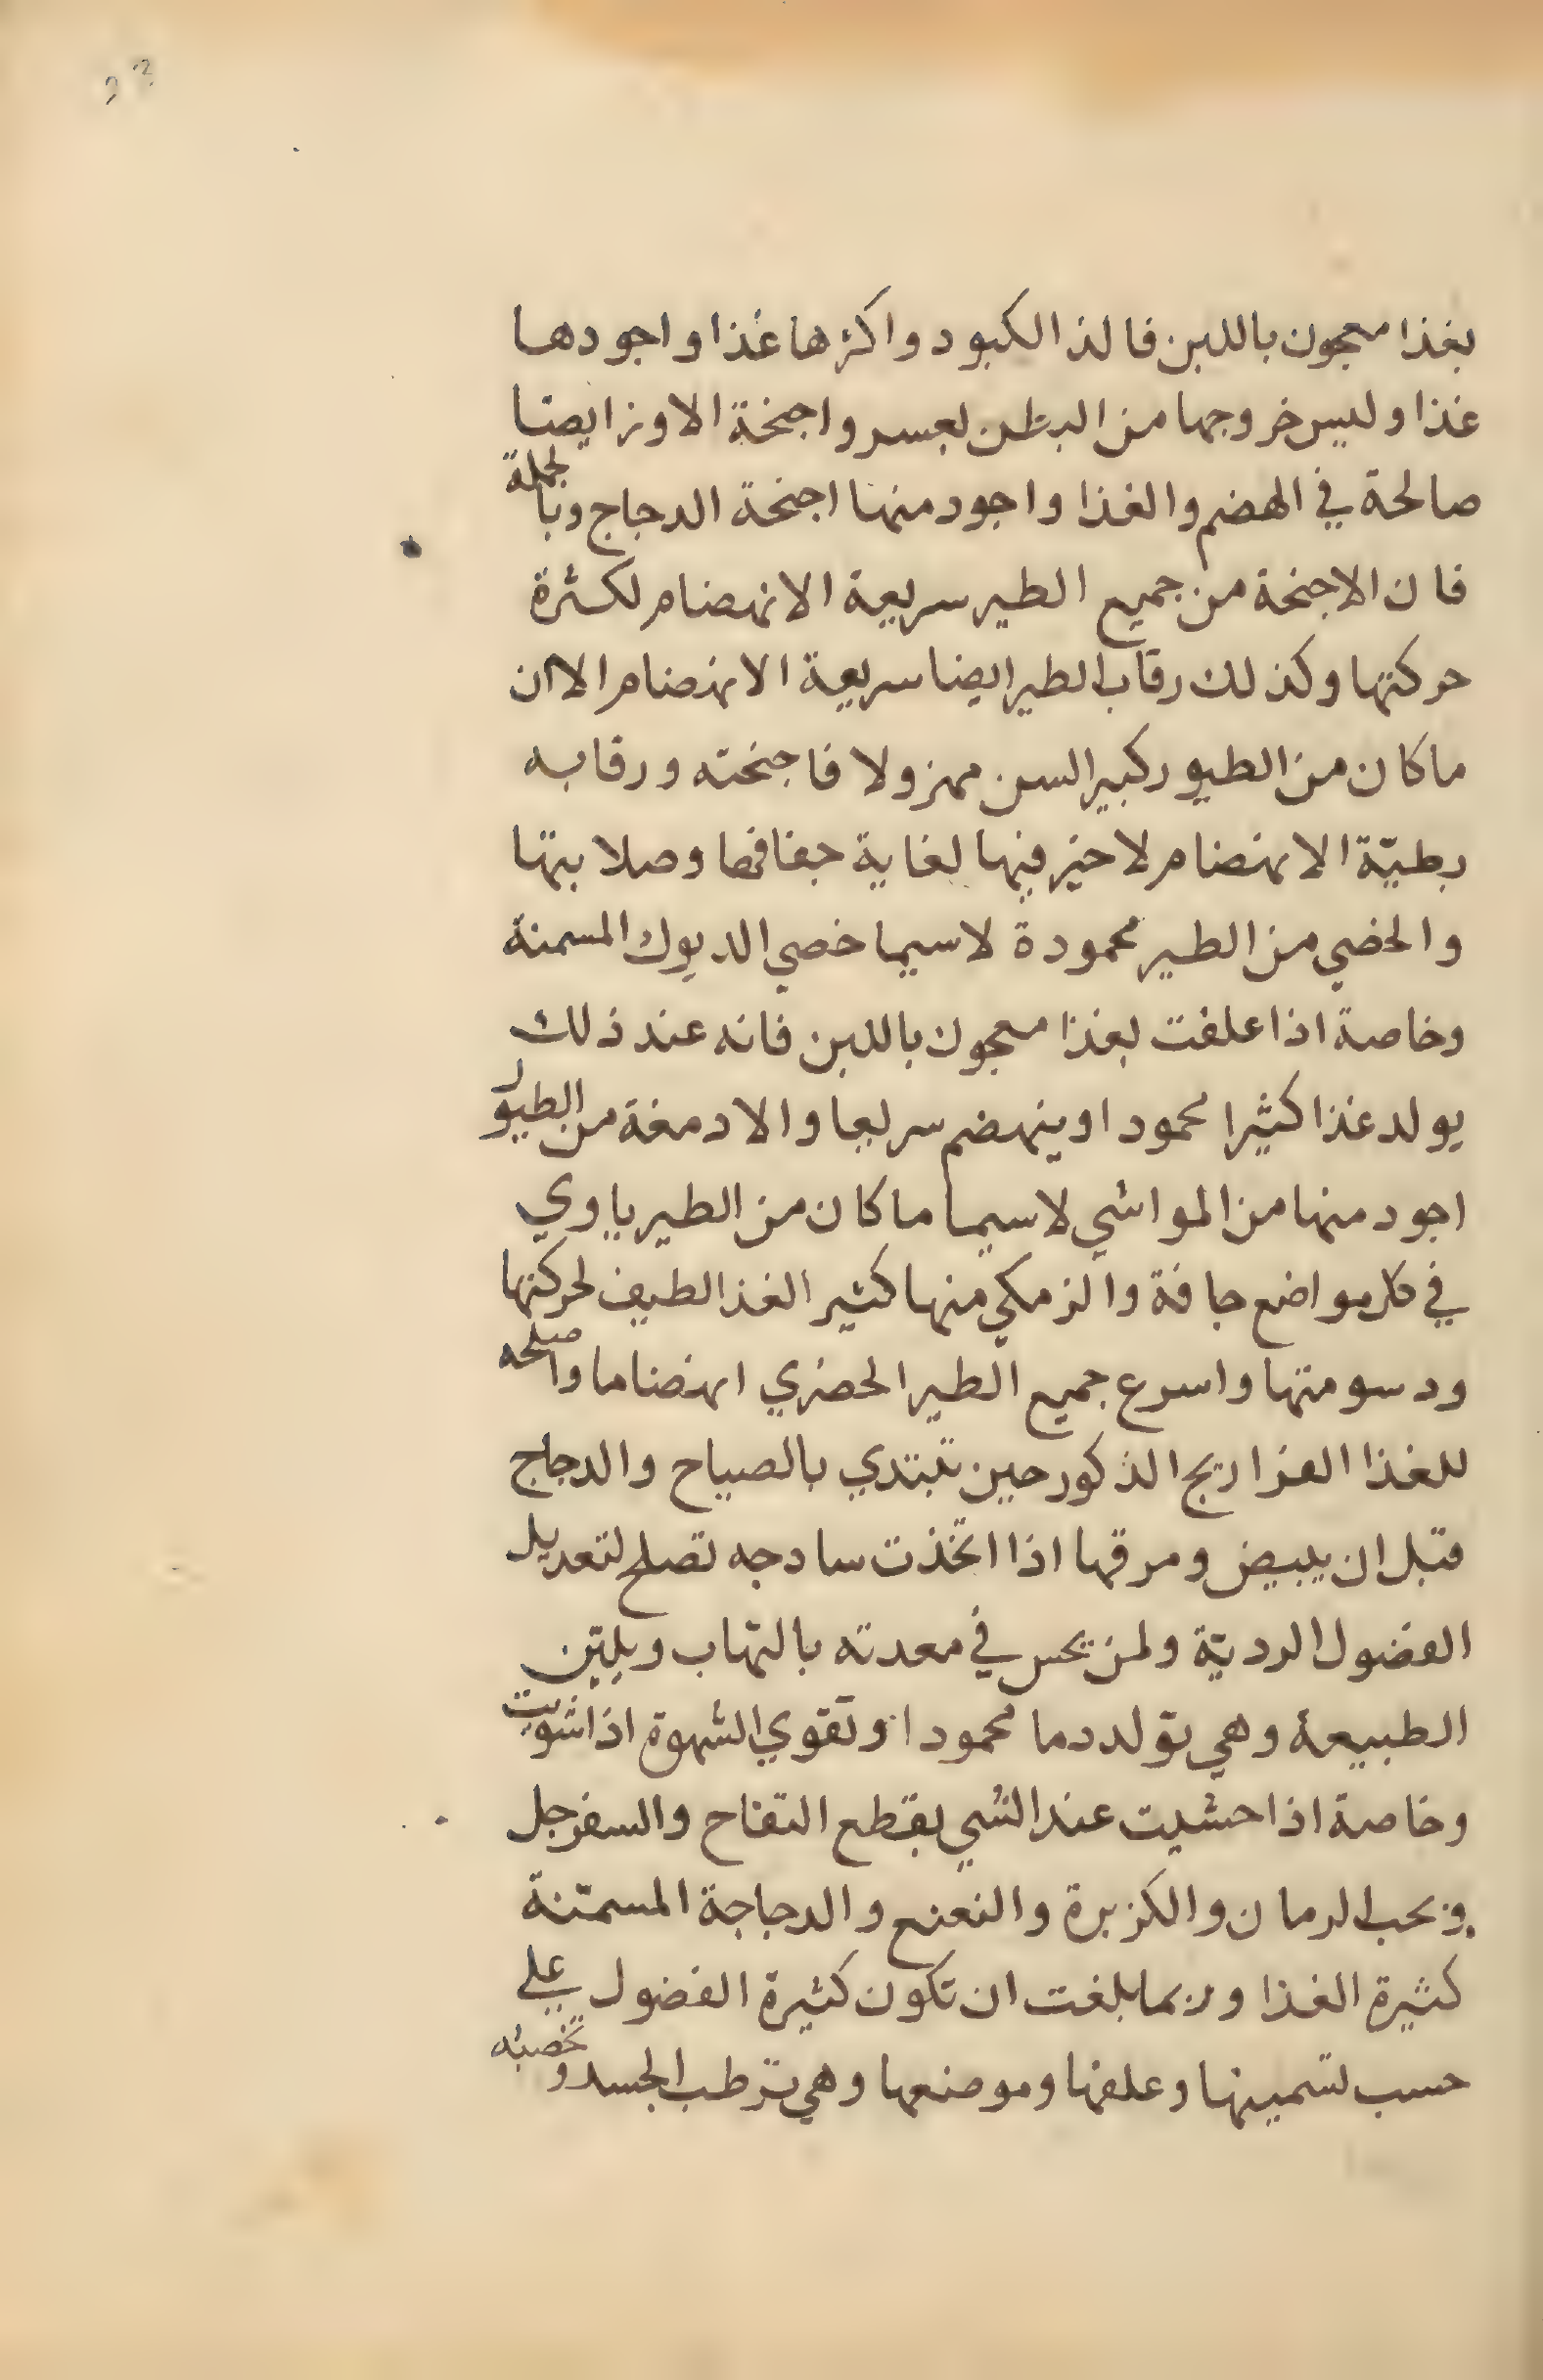 بغذا معجون باللبن فالذ الكبود واكثرها غذا واجودها
غذا وليس خروجها من البطن بعسر واجنحة الاوز ايضا
صالحة في الهضم والغذا واجود منها اجنحة الدجاج وبالجملة
فان الاجنحة من جميع الطير سريعة الانهضام لكثرة
حركتها وكذلك رقاب الطير ايضا سريعة الانهضام الا ان
ما كان من الطيور كبير السن مهزولا فاجنحته ورقابه
بطيّة الانهضام لا خير فيها لغاية جفافها وصلابتها
والخصي من الطير محمودة لاسيما خصي الديوك المسمنة
وخاصة اذا علفت بغذا معجون باللبن فانه عند ذلك
يولد غذا كثيرا محمودا وينهضم سريعا والادمغة من الطيور
اجود منها من المواشي لاسيما ما كان من الطير ياوي
في كل مواضع جافة والزمكي منها كثير الغذا لطيف لحركتها
ودسومتها واسرع جميع الطير الحضري انهضاما واصلحه
للغذا الفراريج الذكور حين تبتدي بالصياح والدجاج
قبل ان يبيض ومرقها اذا اتخذت سادجه تصلح لتعديل
الفضول الرديّة ولمن يحس في معدته بالتهاب ويليّن
الطبيعة وهي تولد دما محمودا وتقوي الشهوة اذا شويت
وخاصة اذا حشيت عند الشي بقطع التفاح والسفرجل
وبحب الرمان والكزبرة والنعنع والدجاجة المسمّنة
كثيرة الغذا وربما بلغت ان تكون كثيرة الفضول علي
حسب تسمينها وعلفها وموضعها وهي ترطب الجسد وتخصبه